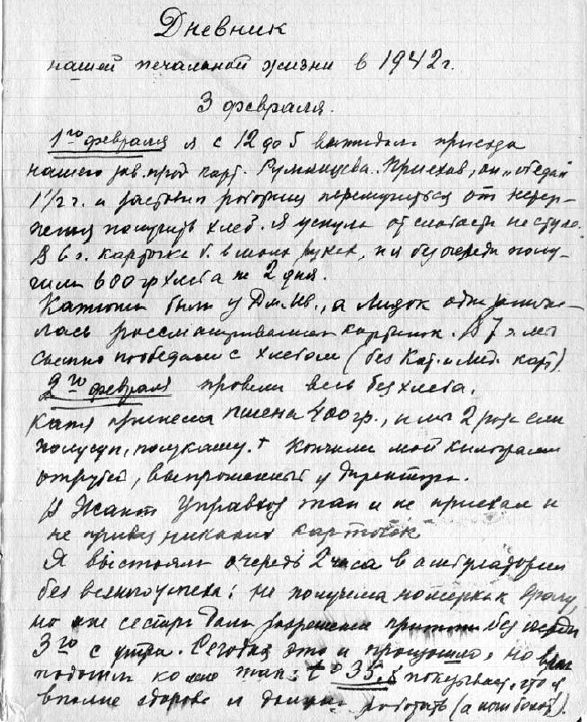 Дневник
нашей печальной жизни в 1942 г.
3 февраля.
1го февраля я с 12 до 5 выжидала приезда
нашего зав. прод. карт. Румянцева. Приехав, он "обедал"
1 1/2 г. и заставил публику перемучиться от нетер-
пения получить хлеб. Я уснула от слабости на стуле.
В 6 ч. карточки б. в моих руках, и я без очереди полу-
чила 600 гр хлеба на 2 дня.
Катюша была у Дм. Ив., а Лидок одна занима-
лась рассматриванием картинок. В 7 ч. мы
сытно пообедали с хлебом (без Кат. и Лид. карт).
2го февраля провели весь без хлеба.
Катя принесла пшена 400 гр., и мы 2 раза ели
полусуп, полукашу. + Кончили мой килограмм
отрубей, выпрошенный у директора.
В Жакт Управхоз так и не приехал и
не привез никаких карточек
Я выстояла очередь 2 часа в амбулатории
без всякого успеха: не получила номерка к врачу
но мне сестра дала разрешение притти без очереди
3го с утра. Сегодня это и произошло, но врач
подошел ко мне так: t° 35,5 показывает, что я
вполне здорова и должна работать (а ноги болят).